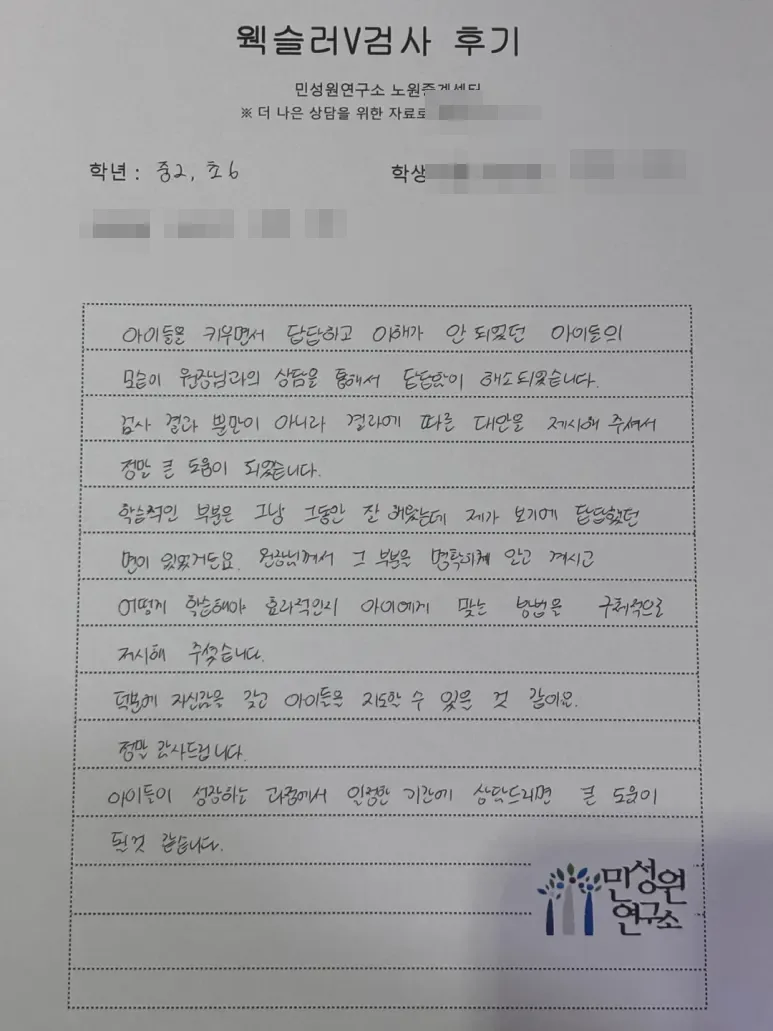 웩슬러V검사 후기
민성원연구소 노원중계센터
※ 더 나은 상담을 위한 자료로
학년 : 중2, 초6
학생
아이들을 키우면서 답답하고 이해가 안 되었던 아이들의
모습이 원장님과의 상담을 통해서 답답함이 해소되었습니다.
검사 결과 뿐만이 아니라 결과에 따른 대안을 제시해 주셔서
정말 큰 도움이 되었습니다.
학습적인 부분은 그냥 그동안 잘 해왔는데 제가 보기에 답답했던
면이 있었거든요. 원장님께서 그 부분을 명확하게 알고 계시고
어떻게 학습해야 효과적인지 아이에게 맞는 방법을 구체적으로
제시해 주셨습니다.
덕분에 자신감을 갖고 아이들을 지도할 수 있을 것 같아요.
정말 감사드립니다.
아이들이 성장하는 과정에서 일정한 기간에 상담드리면 큰 도움이
될것 같습니다.
민성원
연구소